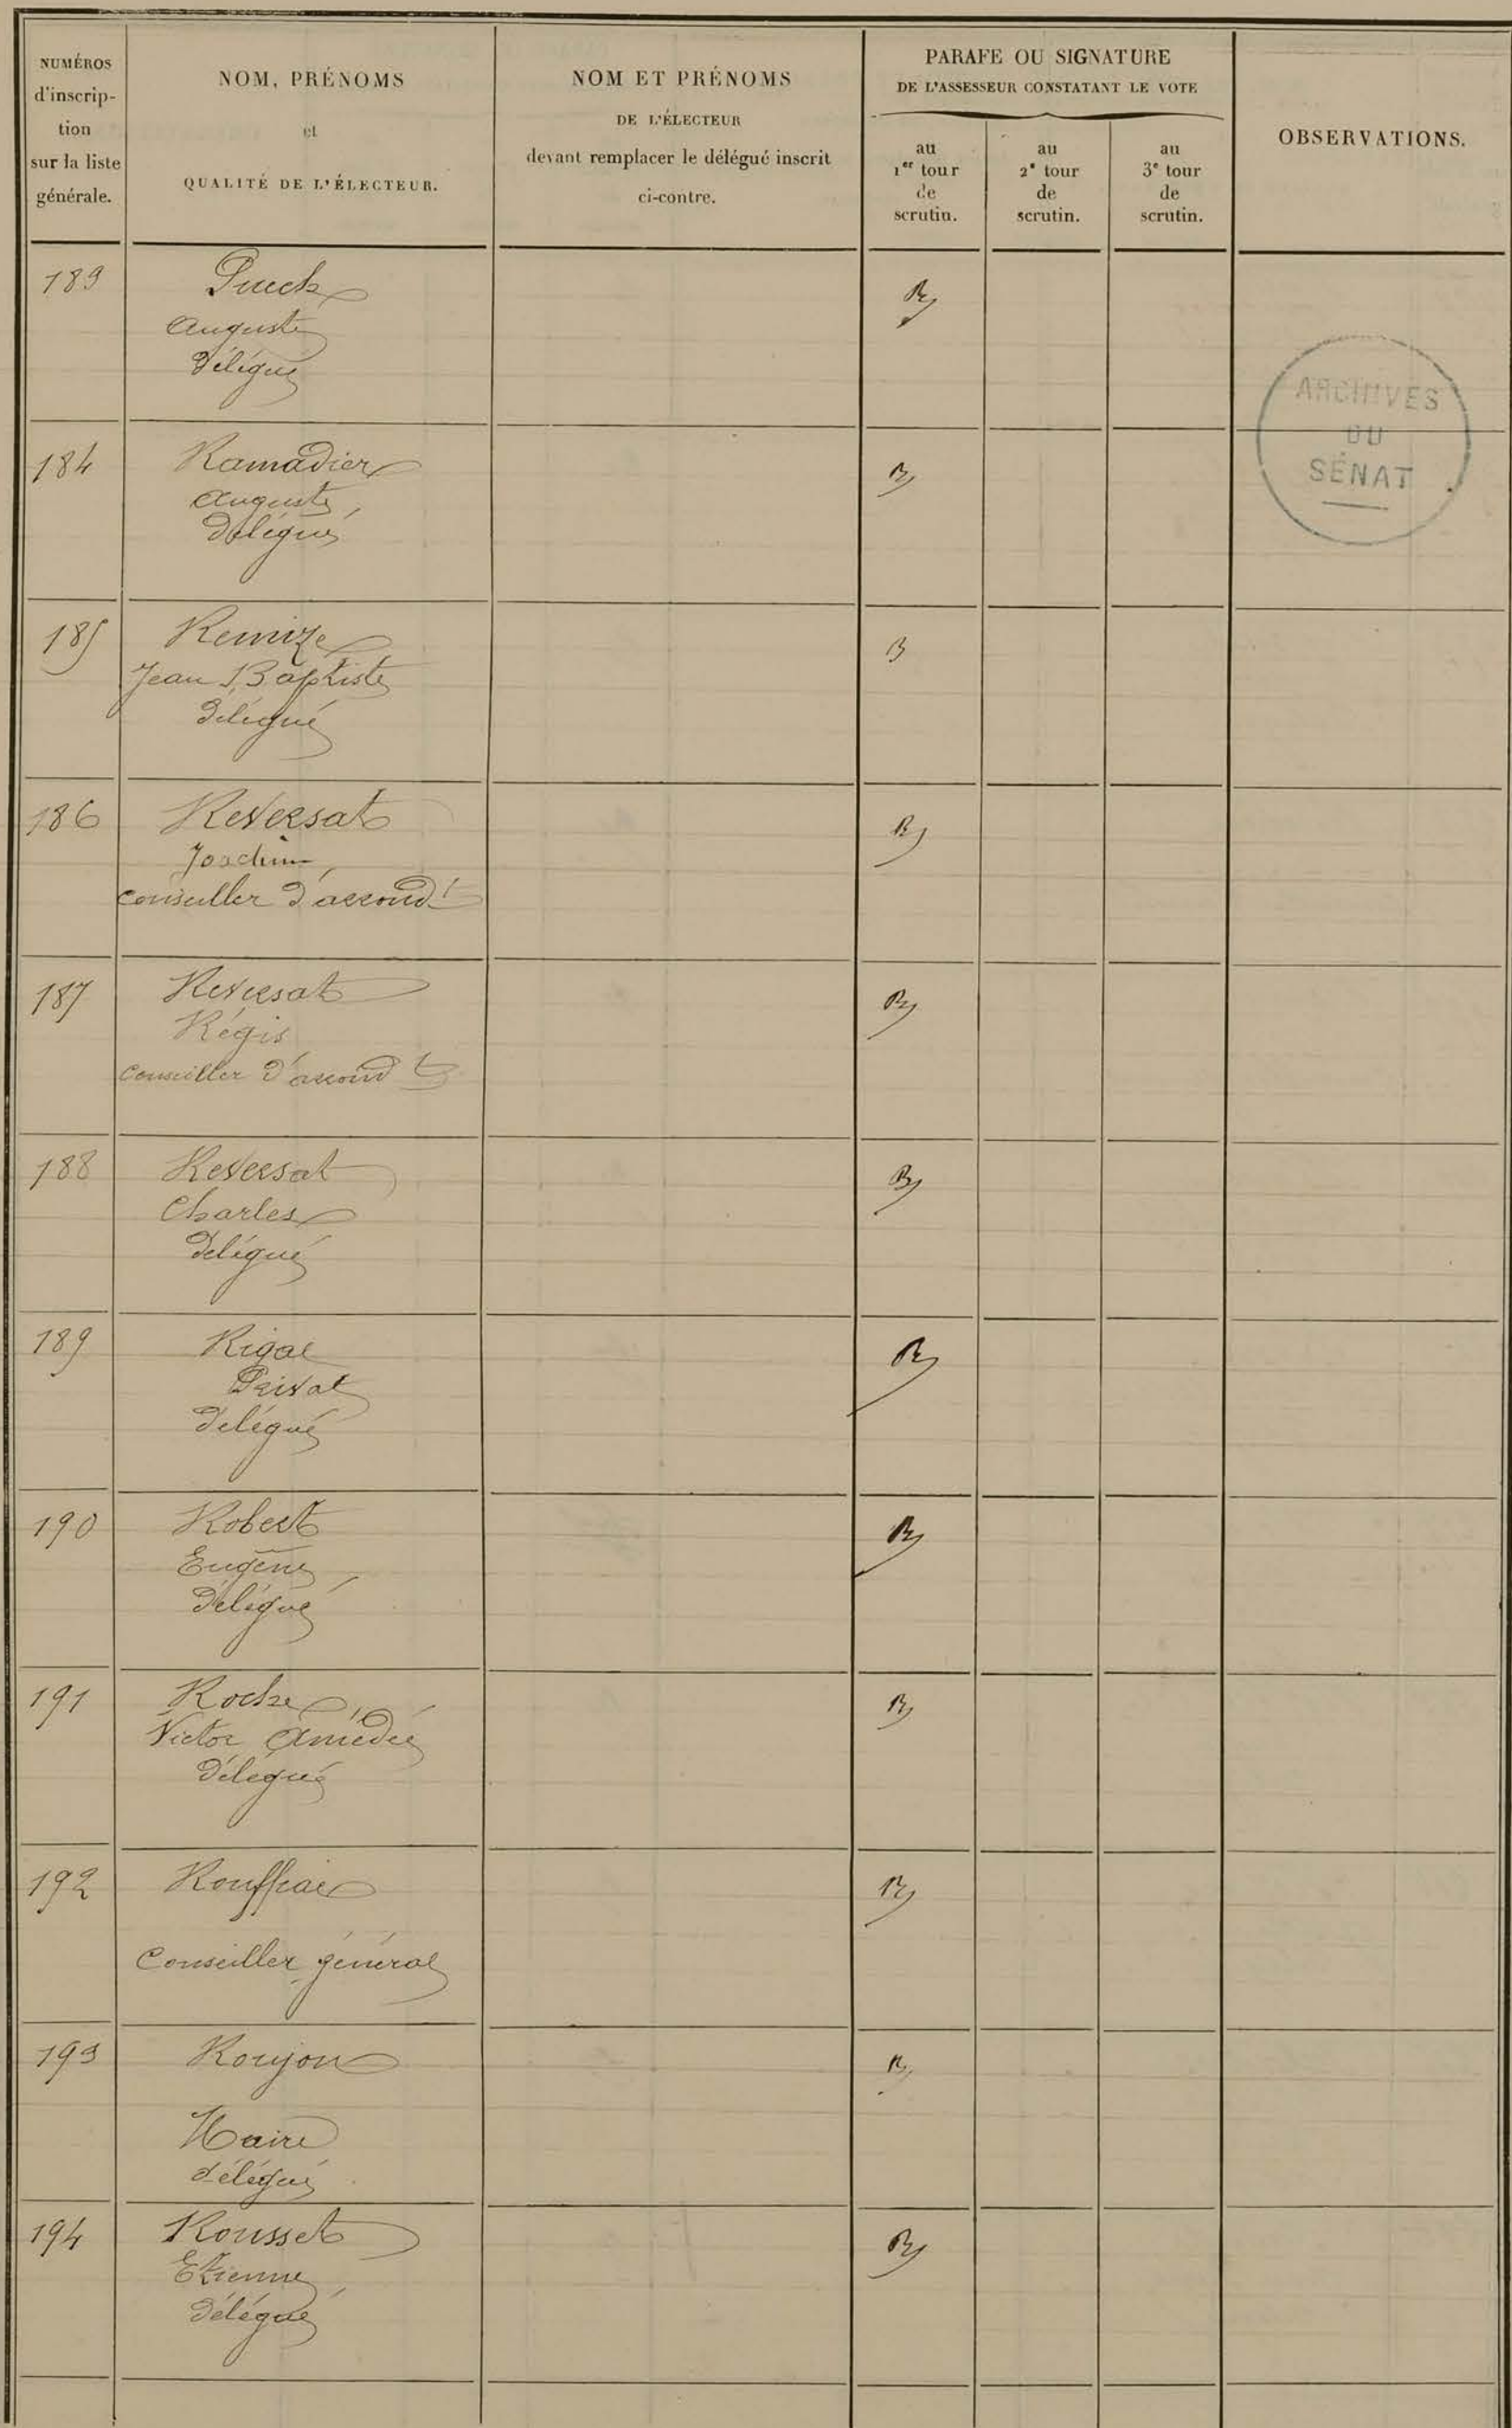 NUMÉROS
d'inscrip-
tion
sur la liste
générale.
NOM, PRÉNOMS
et
QUALITÉ DE L'ÉLECTEUR.
NOM ET PRÉNOMS
DE L'ÉLECTEUR
devant remplacer le délégué inscrit
ci-contre.
PARAFE OU SIGNATURE
DE L'ASSESSEUR CONSTATANT LE VOTE
au
1er tour
de
scrutin.
au
2e tour
de
scrutin.
au
3e tour
de
scrutin.
OBSERVATIONS.
183 Puech
Auguste
Délégué
ARCHIVES
DU
SÉNAT
184 Ramadier
Auguste
Délégué
185 Remize
Jean Baptiste
Délégué
186 Reversat
Joachim
Conseiller d'arrondt
187 Reversat
Régis
Conseiller d'arrondt
188 Reversat
Charles
Délégué
189 Rigal
Privat
Délégué
190 Robert
Eugène
Délégué
191 Roche
Victor Amédée
Délégué
192 Rouffiac
Conseiller général
193 Roujon
Maire
délégué
194 Rousset
Etienne
Délégué